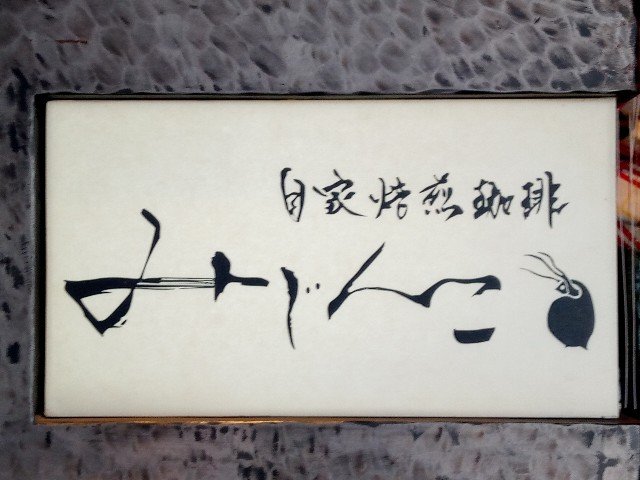 自家焙煎珈琲
みじんこ